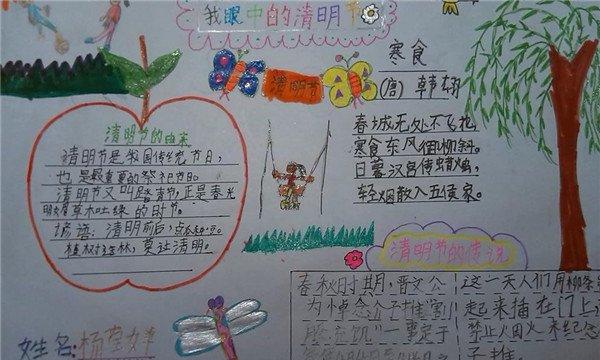 我眼中的清明节
清明节
寒食
(唐) 韩翃
春城无处不飞花
寒食东风御柳斜。
日暮汉宫传蜡烛,
轻烟散入五侯家。
清明节的由来
清明节是我国传统节日,
也是最重要的祭祀节日。
清明节又叫踏青节,正是春光
明媚草木吐绿的时节。
谚语:清明前后,点瓜种豆。
植树造林,莫过清明。
清明节的传说
春秋时期,晋文公
为悼念介子推"割
这一天人们用柳条
起来插在门上
禁止烟火
子推
姓名:杨莹